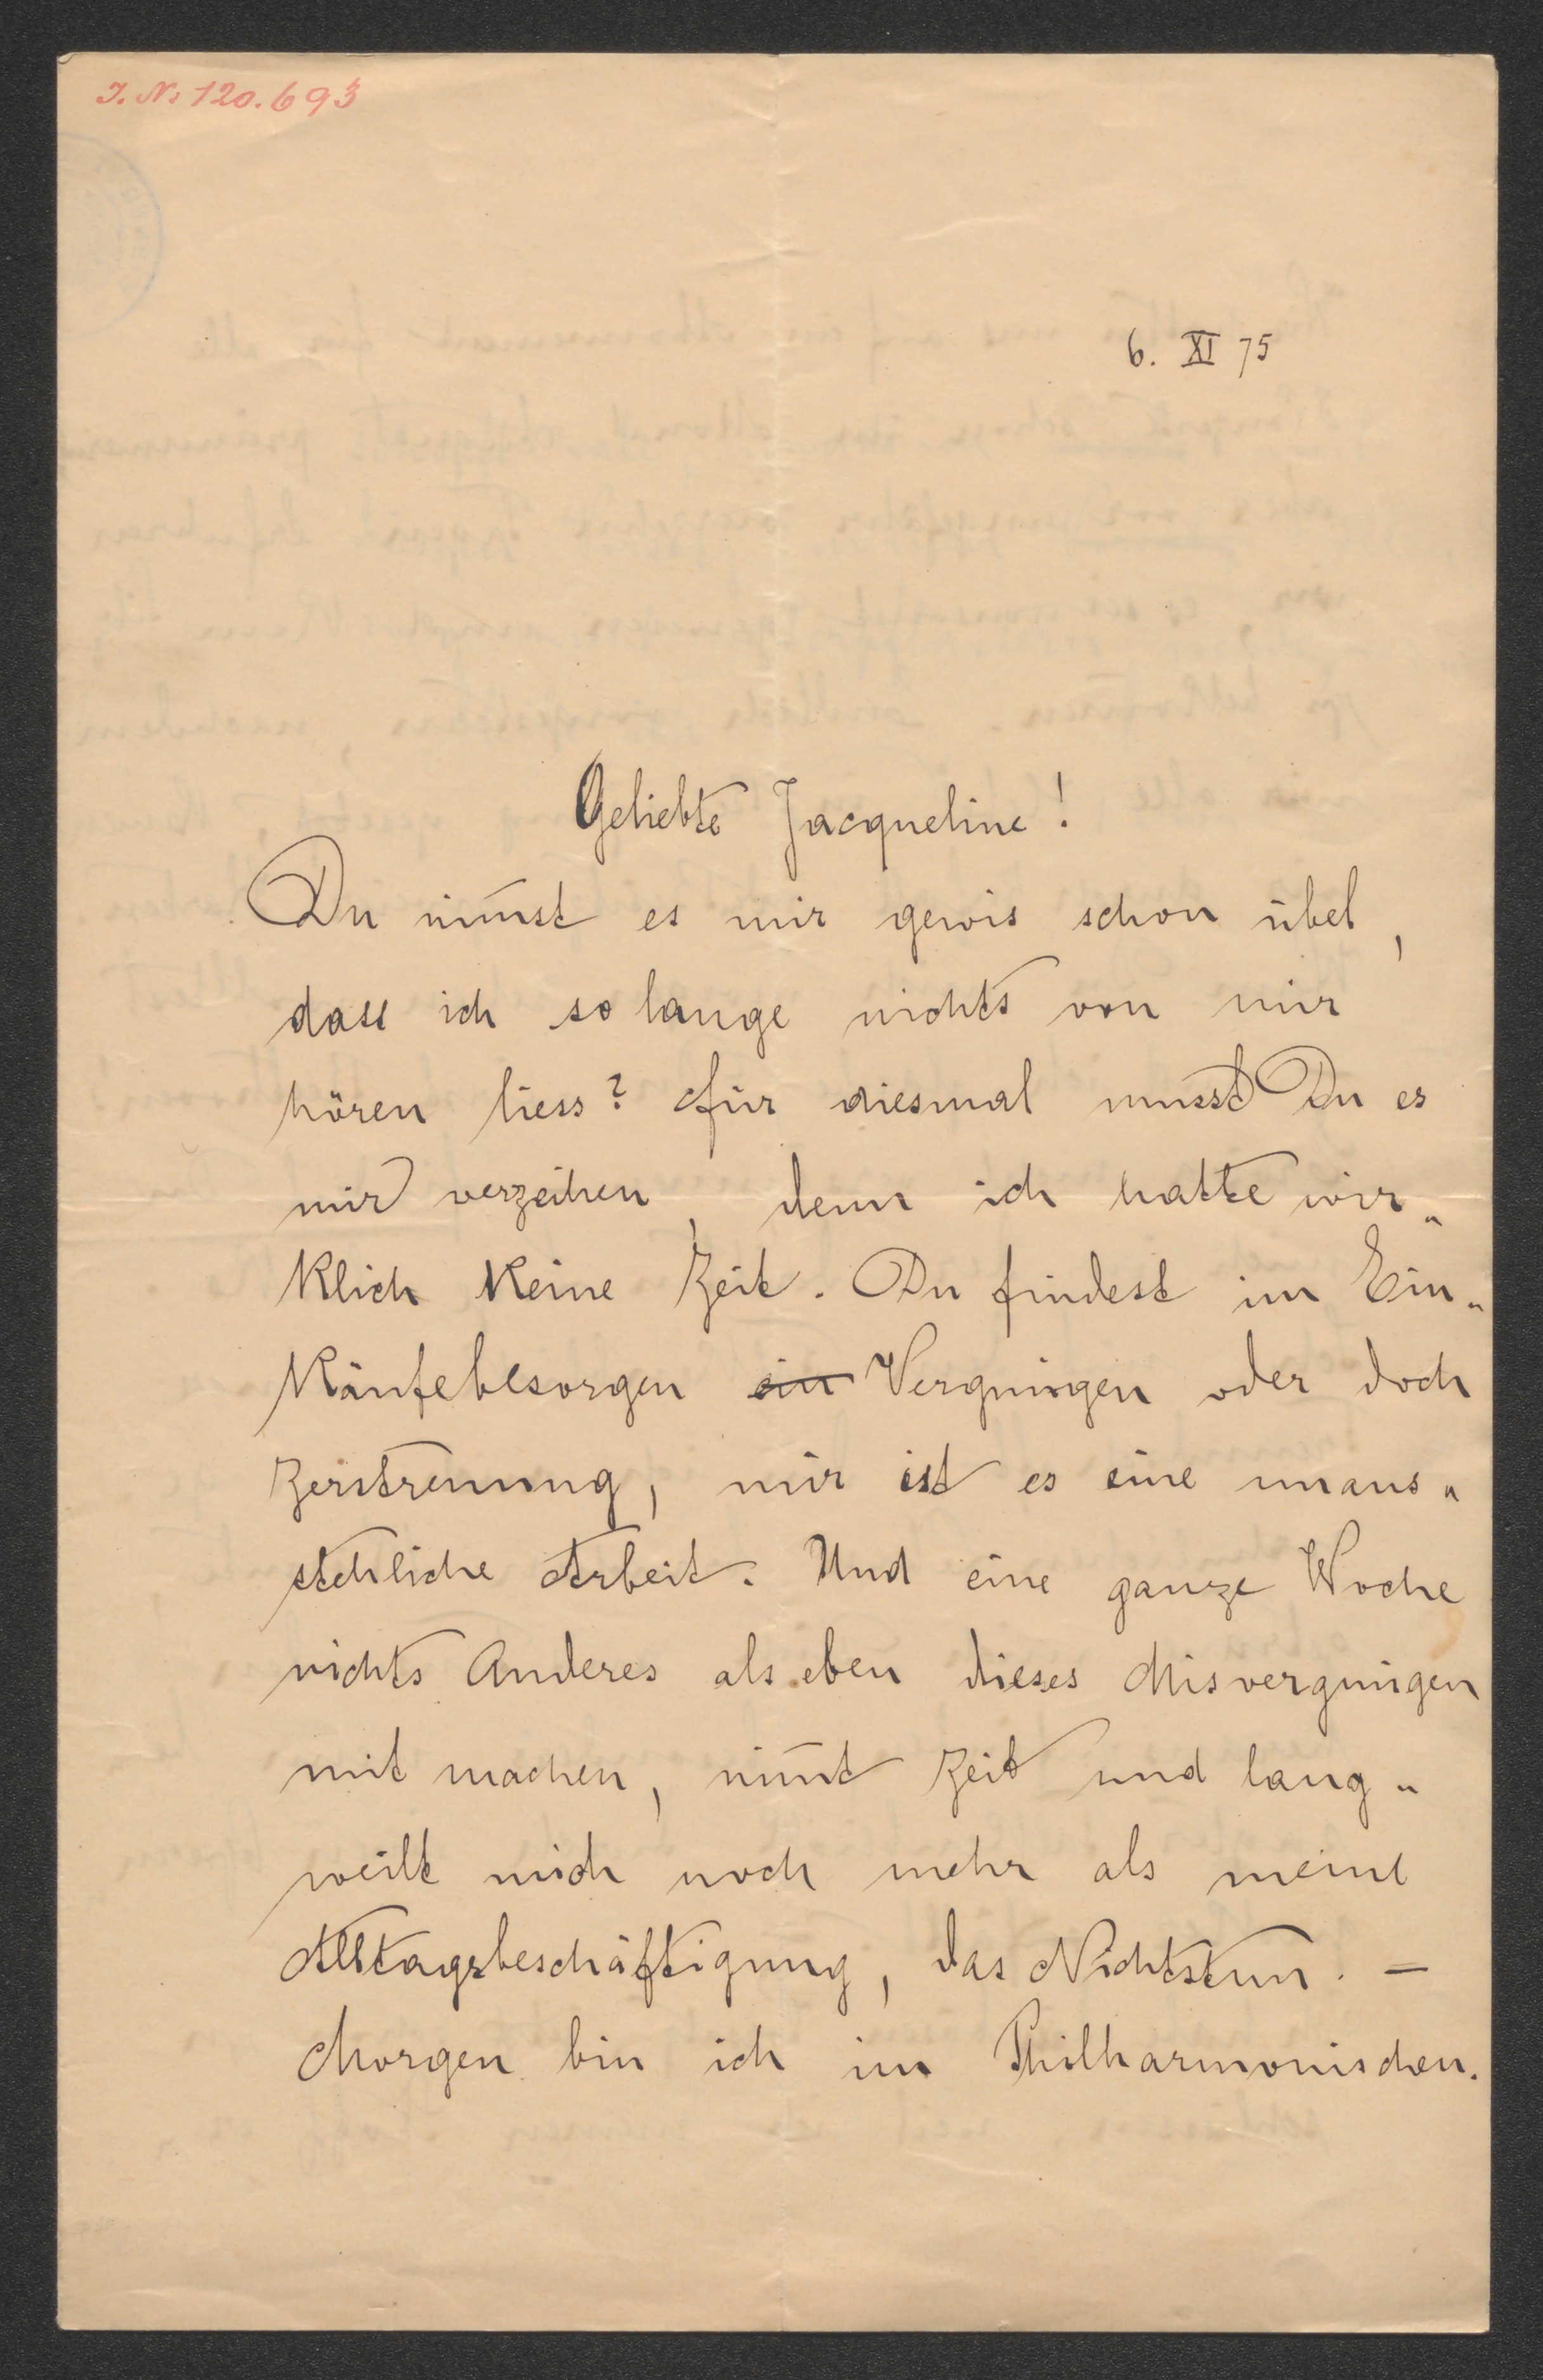 I. N: 120.693
6. XI 75
Geliebte Jacqueline!
Du nim̄st es mir gewis schon übel,
dass ich so lange nichts von mir
hören liess? Für diesmal musst Du es
mir verzeihen, denn ich hatte wir„
klich keine Zeit. Du findest im Ein„
käufebesorgen ein Vergnügen oder doch
Zerstreuung, mir ist es eine unaus„
stehliche Arbeit. Und eine ganze Woche
nichts Anderes als eben dieses Misvergnügen
mit machen, nim̄t Zeit und lang„
weilt mich noch mehr als meine
Alltagsbeschäftigung, das Nichtstun. —
Morgen bin ich im Philharmonischen.